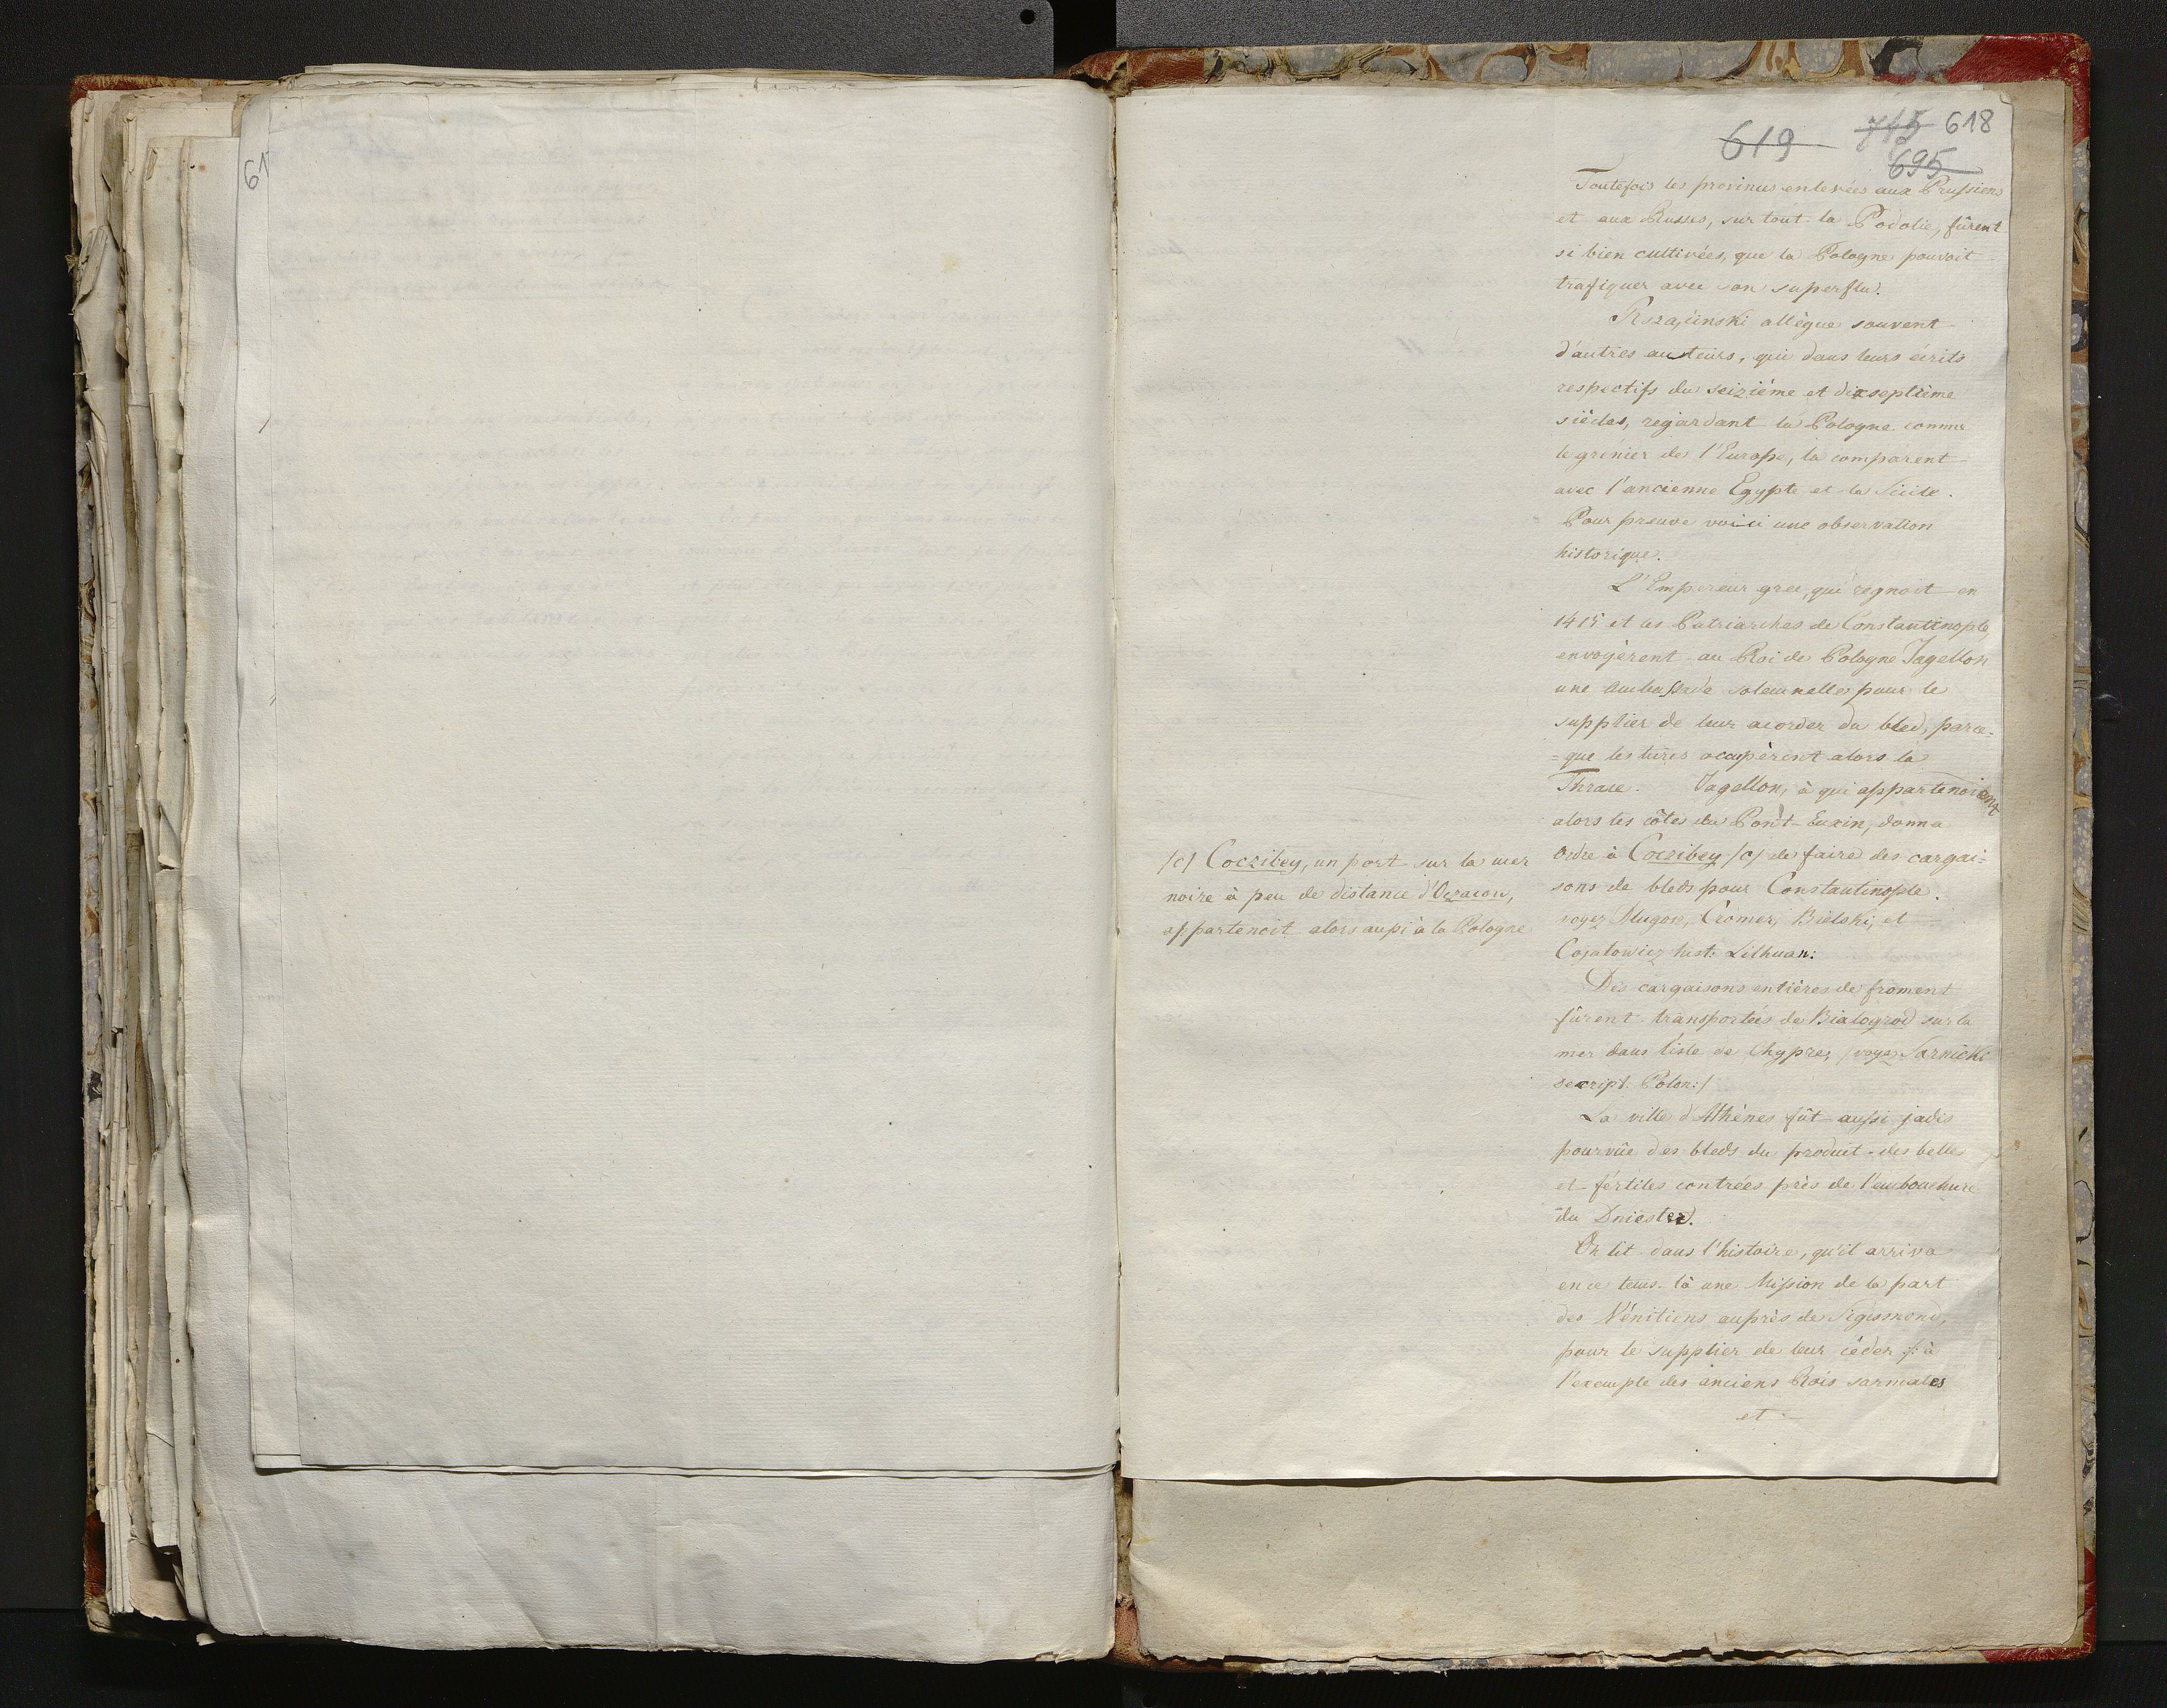 61
619 745 618
695
Toutefois les provinces enlevées aux Prussiens
et aux Russes, sur tout la Podolie, fûrent
si bien cultivées, que la Pologne pouvoit
trafiquer avec son superflu.
Rszaçinski allègue souvent
d'autres auteurs, qui dans leurs écrits
respectifs du seizième et dixseptième
siècles, regardant la Pologne comme
le grénier de l'Europe, la comparent
avec l'ancienne Egypte et la Sicile.
Pour preuve voici une observation
historique.
L'Empereur grec, qui regnoit en
1415 et les Patriarches de Constantinople,
envoyèrent au Roi de Pologne Jagellon
une Ambassade solemnelle pour le
supplier de leur acorder du bled, parce-
=que les turcs occupèrent alors la
Thrace. Jagellon, à qui appartenoient
alors les côtes du Pont-Euxin, donna
ordre à Coczibey /c/ de faire des cargai=
sons de bleds pour Constantinople.
voyez Dlugos, Cromer, Bielski, et
Cojalowicz hist: Lithuan:
Des cargaisons entières de froment
fûrent transportées de Bialogrod sur la
mer dans l'isle de Chypre, /voyez Sarnicki
descript. Polon:/
La ville d'Athènes fût aussi jadis
pourvûe des bleds du produit des belles
et fértiles contrées près de l'embouchure
du Dniester.
On lit dans l'histoire, qu'il arriva
en ce tems-là une Mission de la part
des Vénitiens auprès de Sigismond,
pour le supplier de leur céder /: à
l'exemple des anciens Rois sarmates
et
/c/ Coczibey, un port sur la mer
noire à peu de distance d'Oczacow,
appartenoit alors aussi à la Pologne